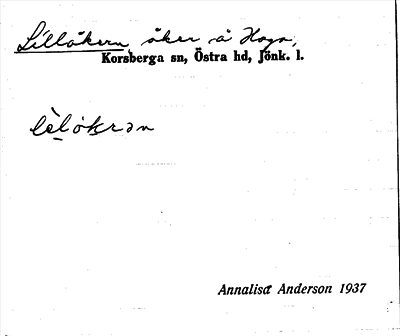 Lillåkern åker å Haga,
Korsberga sn, Östra hd, Jönk. l.
Annalisa Anderson 1937